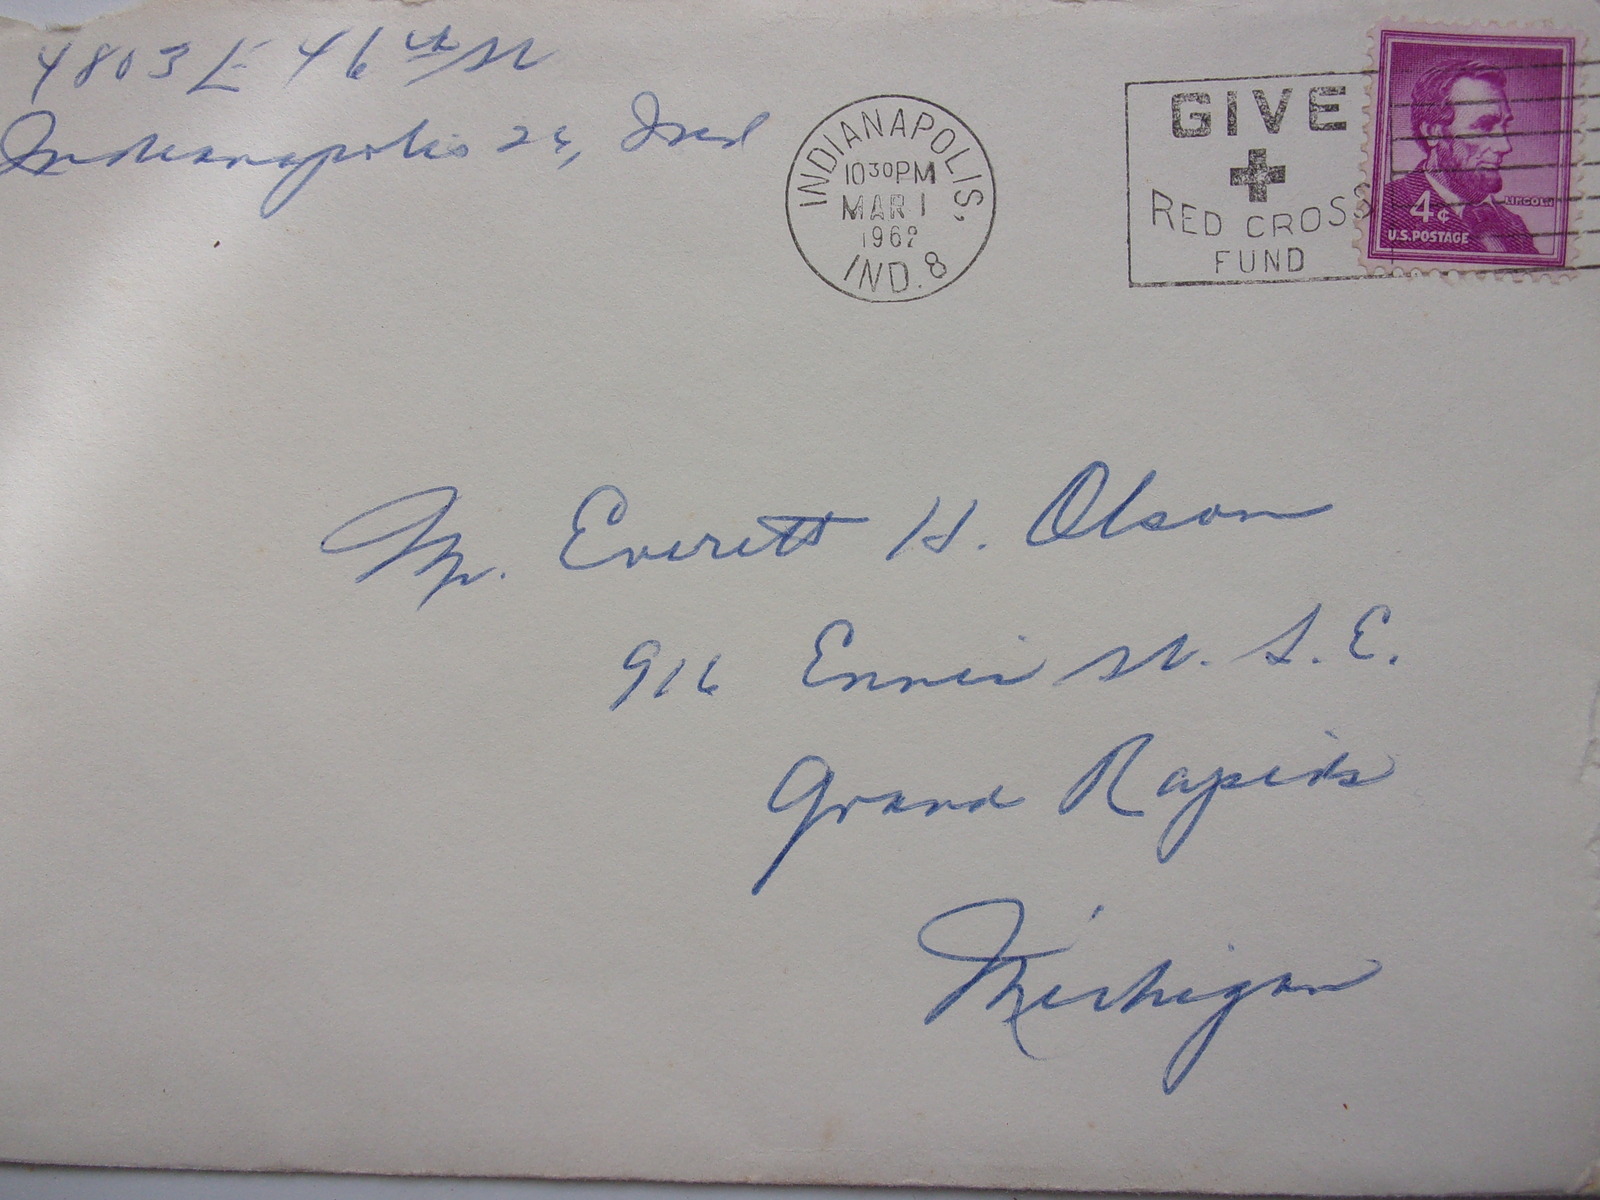 4803 E 46th St
Indianapolis 26, Ind
INDIANAPOLIS,
10 30 PM
MAR 1
1962
IND. 8
GIVE
RED CROSS
FUND
4¢
LINCOLN
U.S. POSTAGE
Mr. Everett H. Olson
916 Ennis St. S.E.
Grand Rapids
Michigan